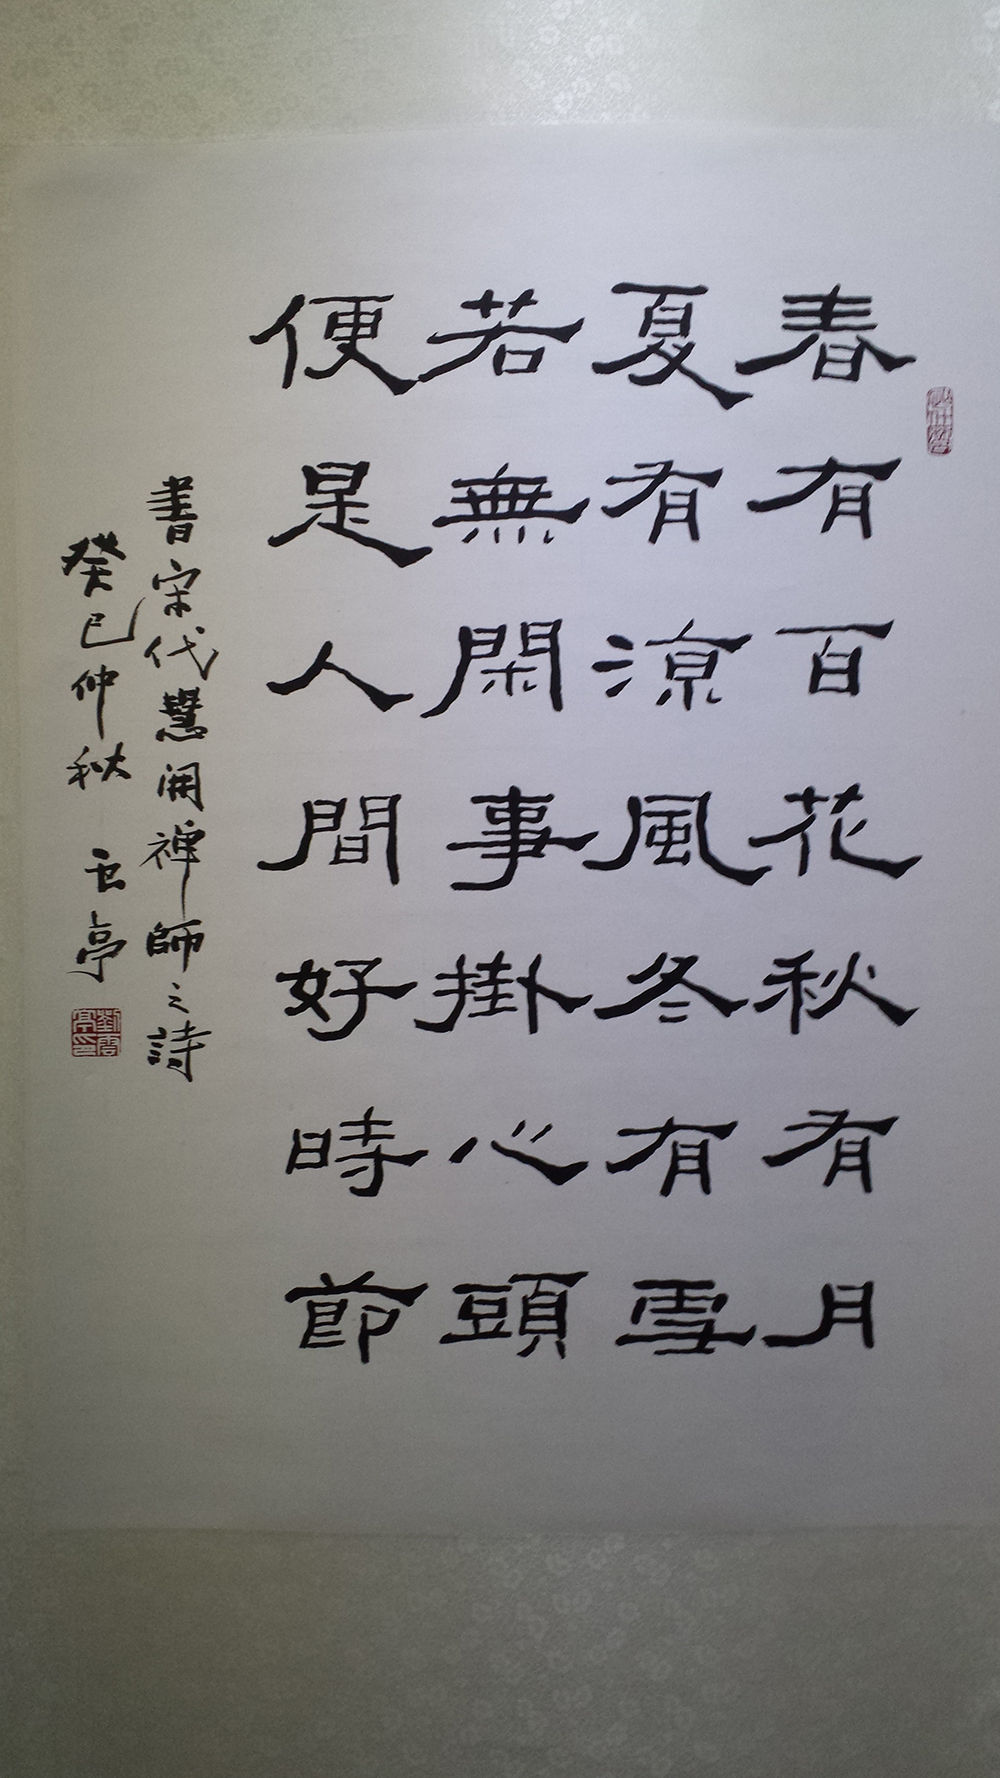 春有百花秋有月
夏有涼風冬有雪
若無閑事掛心頭
便是人間好時節
書宋代慧開禪師之詩
癸巳仲秋 云亭
劉雲亭印